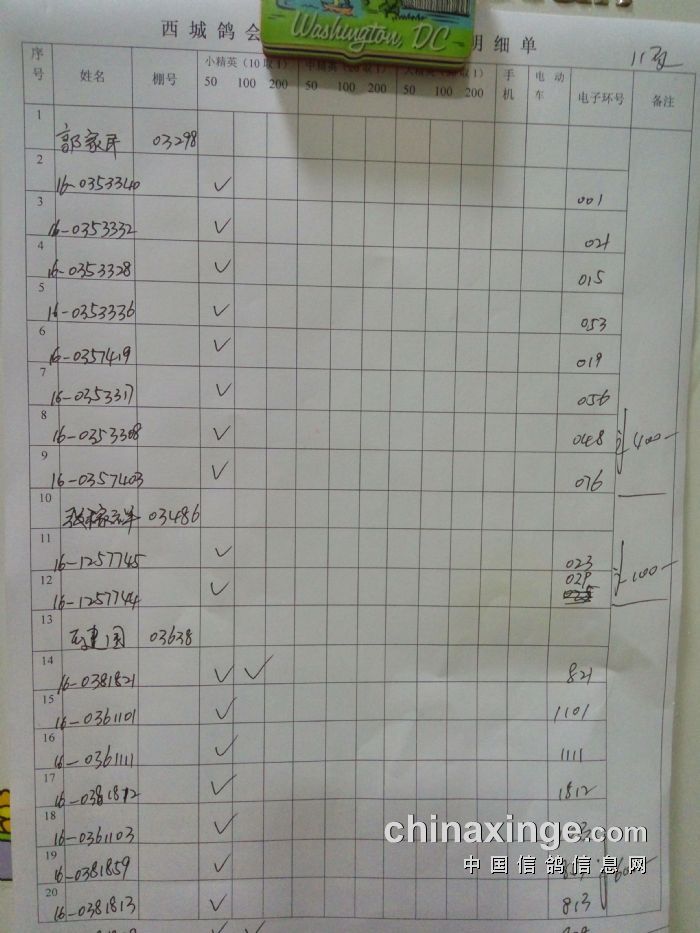 Washington, DC
西城鸽会 明细单
序号 姓名 棚号 小精英（10取1） 50 100 200 50 100 200 50 100 200 手机 电动车 电子环号 备注
1 郭家民 03298
2 16-0353340 ✓ 001
3 16-0353332 ✓ 021
4 16-0353328 ✓ 015
5 16-0353336 ✓ 053
6 16-0357419 ✓ 019
7 16-0353317 ✓ 056
8 16-0353308 ✓ 048 400-
9 16-0357403 ✓ 076
10 03486
11 16-1257745 ✓ 023
12 16-1257744 ✓ 029 100-
13 建国 03638
14 16-0381821 ✓ ✓ 821
15 16-0361101 ✓ 1101
16 16-0361111 ✓ 1111
17 16-0381812 ✓ 1812
18 16-0361103 ✓
19 16-0381859 ✓
20 16-0381813 ✓ 813
chinaxinge.com
中国信鸽信息网